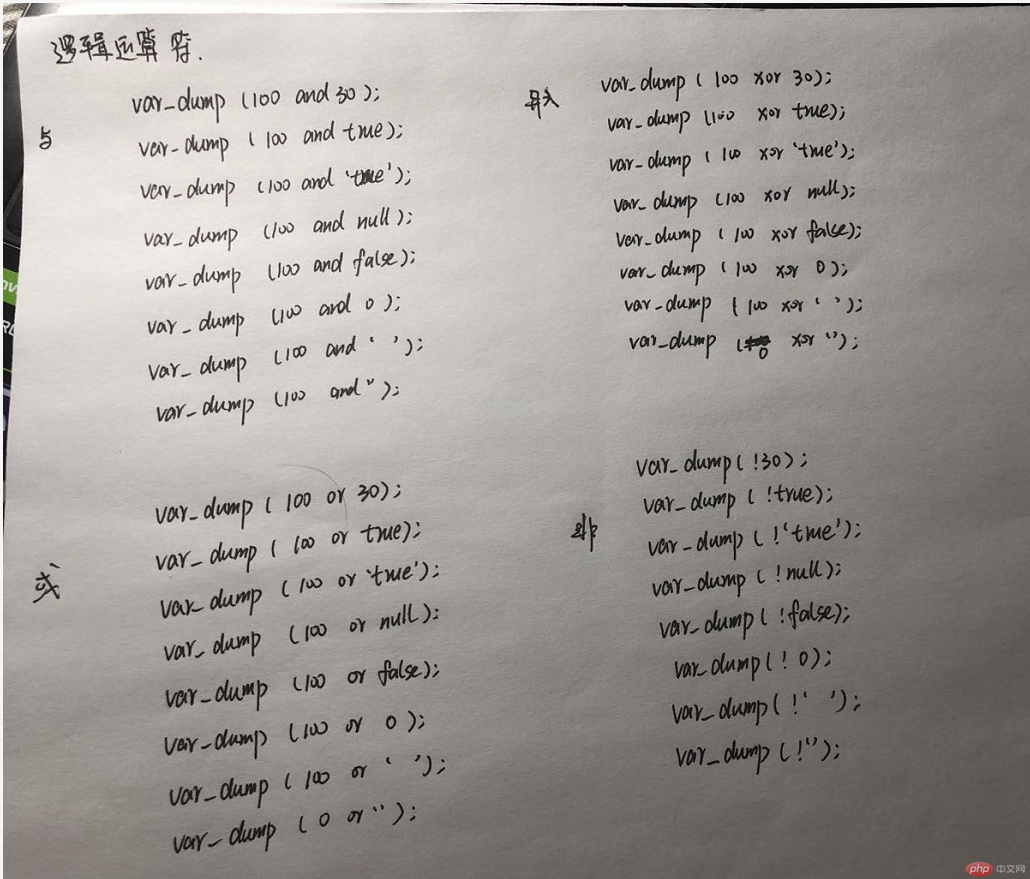 逻辑运算符.
与
var_dump (100 and 30);
var_dump (100 and true);
var_dump (100 and 'true');
var_dump (100 and null);
var_dump (100 and false);
var_dump (100 and 0);
var_dump (100 and ' ');
var_dump (100 and '');
异或
var_dump (100 xor 30);
var_dump (100 xor true);
var_dump (100 xor 'true');
var_dump (100 xor null);
var_dump (100 xor false);
var_dump (100 xor 0);
var_dump (100 xor ' ');
var_dump (0 xor '');
或
var_dump (100 or 30);
var_dump (100 or true);
var_dump (100 or 'true');
var_dump (100 or null);
var_dump (100 or false);
var_dump (100 or 0);
var_dump (100 or ' ');
var_dump (0 or '');
非
var_dump(!30);
var_dump (!true);
var_dump (!'true');
var_dump (!null);
var_dump (!false);
var_dump(! 0);
var_dump(!' ');
var_dump (!'');
php 中文网